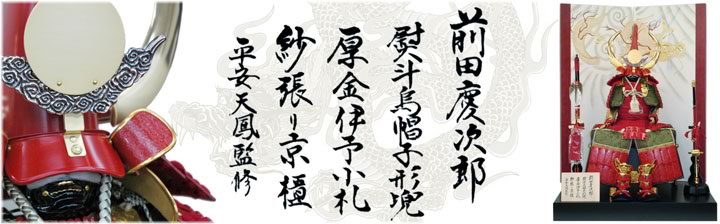 前田慶次郎
熨斗烏帽子形兜
厚金伊予小札
紗張り京櫃
平安天鳳監修